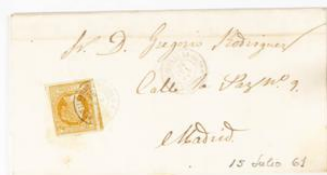 Sr. D. Gregorio Rodriguez
Calle la Paz nº 9.
Madrid.
15 Julio 61